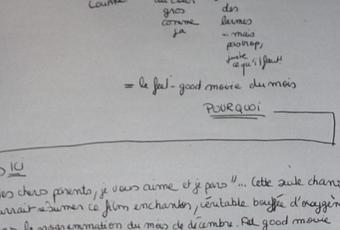 gros des
comme larmes
ça - mais
pas trop,
juste
ce qu'il faut
= le feel-good movie du mois
POURQUOI
ICI
es chers parents, je vous aime et je pars"... Cette seule chans
urrait résumer ce film enchanteur, véritable bouffée d'oxygèn
la programmation du mois de décembre. Feel good movie